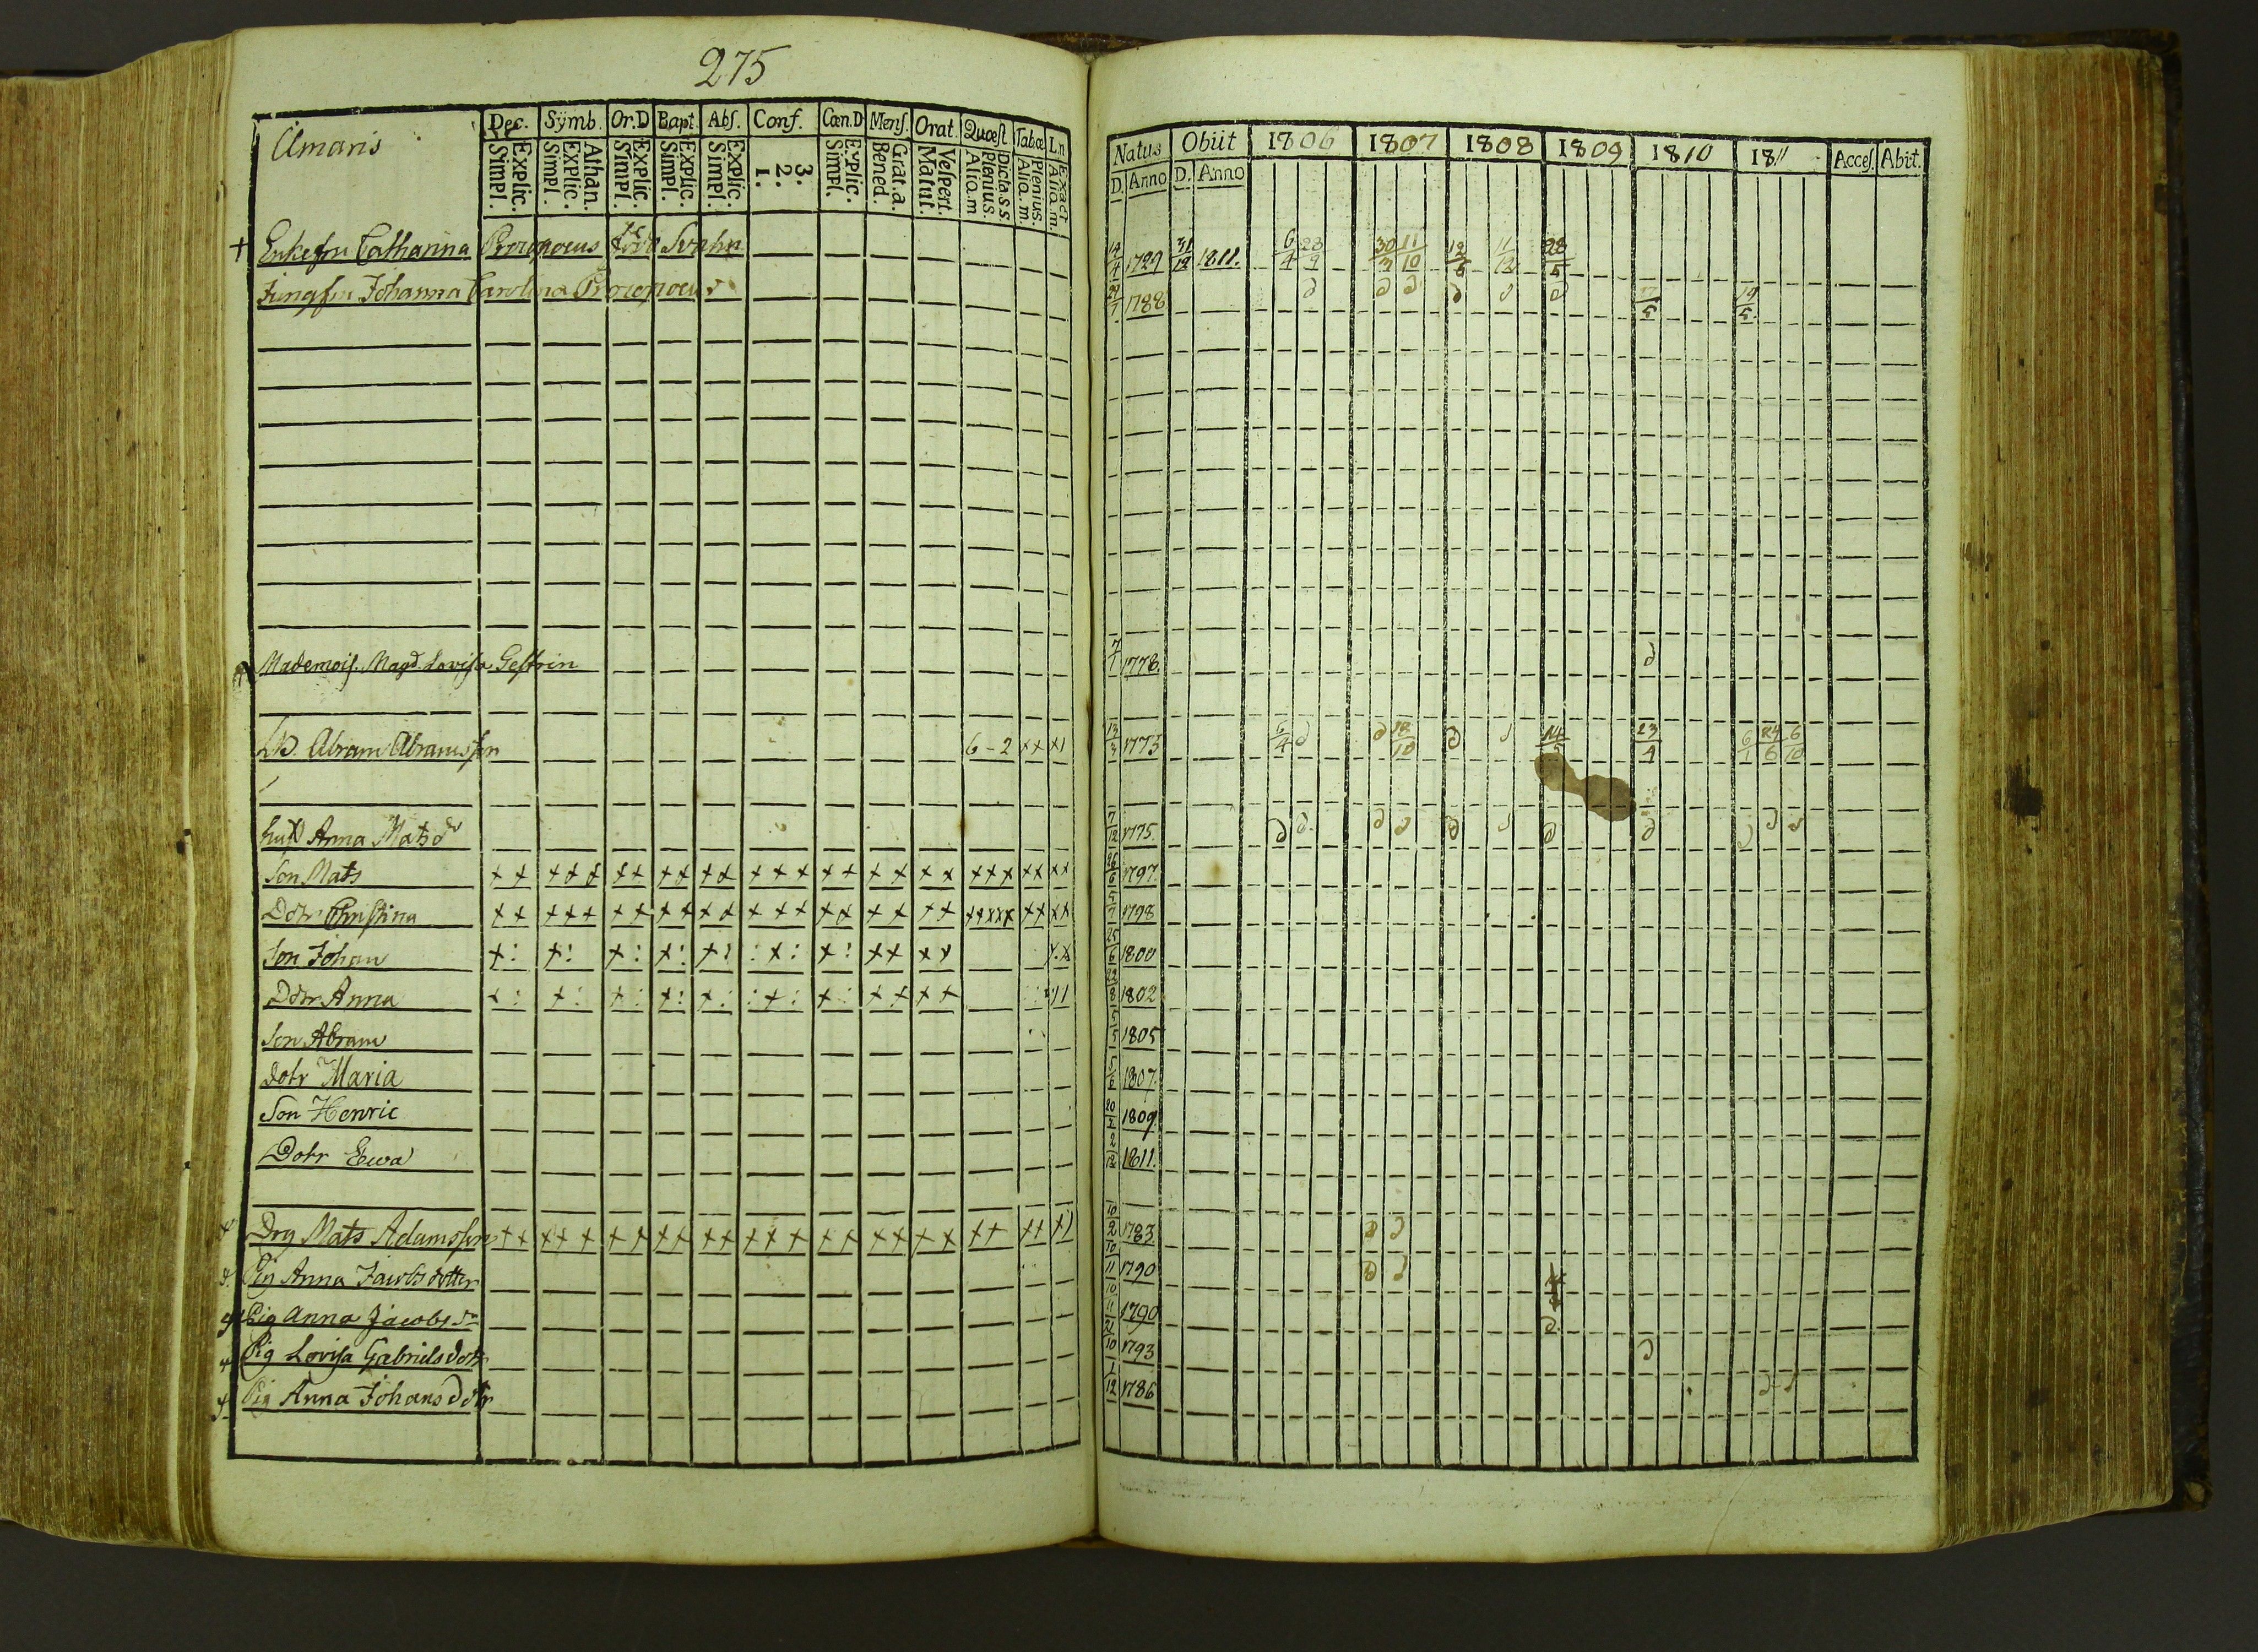 275
Åmaris
Dec. Symb. Or.D Bapt. Abſ. Conf. Cœn.D Menſ. Orat. Quæſt Tabæ L.n
Explic. Simpl. Athan. Explic. Simpl. Explic. Simpl. Explic. Simpl. Explic. Simpl. 3. 2. 1. Explic. Simpl. Grat.a. Bened. Veſpert. Matut. Dicta.s.s. Plenius. Alia.m Plenius. Alia.m. Exact Alia.m.
Natus Obiit 1806 1807 1808 1809 1810 1811 Acceſ. Abit.
D. Anno D. Anno
† Enkefru Catharina Procopoeus född Svahn 14/4 1729 31/12 1811. 6/4 28/9 30/3 11/10 11/12 28/5
Jungfru Johanna Carolina Procopoeus 1788 17/5 19/5
Mademoiſ. Magd. Loviſa Geſtrin 7/1 1778.
Abram Abramsſon 6-2 xx x1 13/3 1773 6/4 18/10 14/5 23/4 6/1 24/6 6/10
huſt Anna Matsdr 7/12 1775
Son Mats 26/6 1797.
Dotr Christina 5/7 1798
Son Johan 25/6 1800
Dotr Anna 22/8 1802
Son Abram 5/5 1805
dotr Maria 1807.
Son Henric 1809
Dotr Ewa 2/12 1811.
Drg Mats Adamsſon 10/2 1783.
Pig Anna Jacobsdotter 10/11 1790
Pig Anna Jacobsdr 10/11 1790
Pig Loviſa Gabrielsdotr 21/10 1793
Pig Anna Johansdotr 1/12 1786